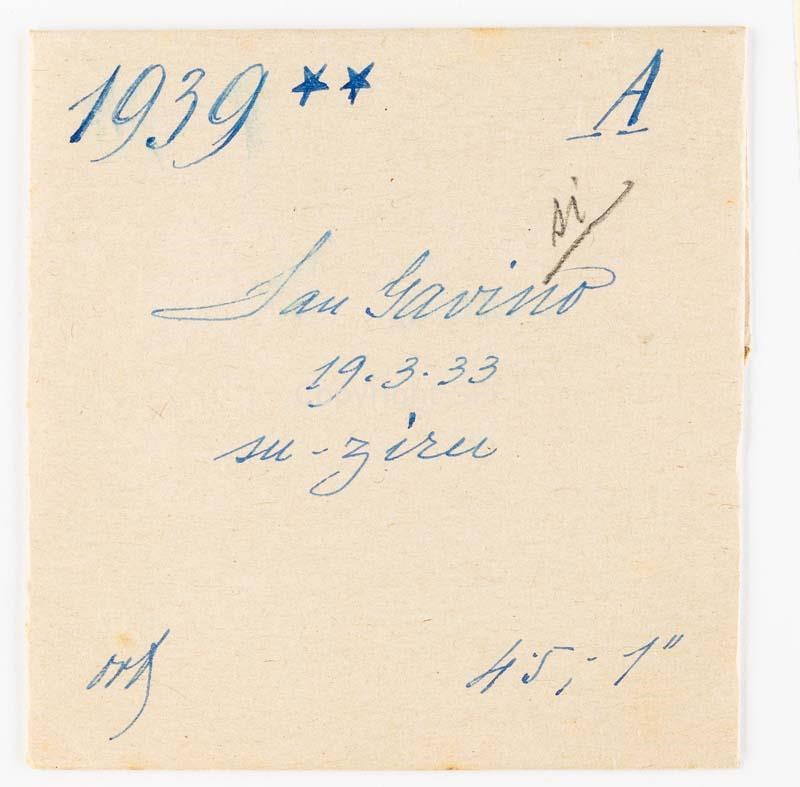 1939 ★★ A
si
San Gavino
19.3.33
su-ziru
ort 45,- 1"